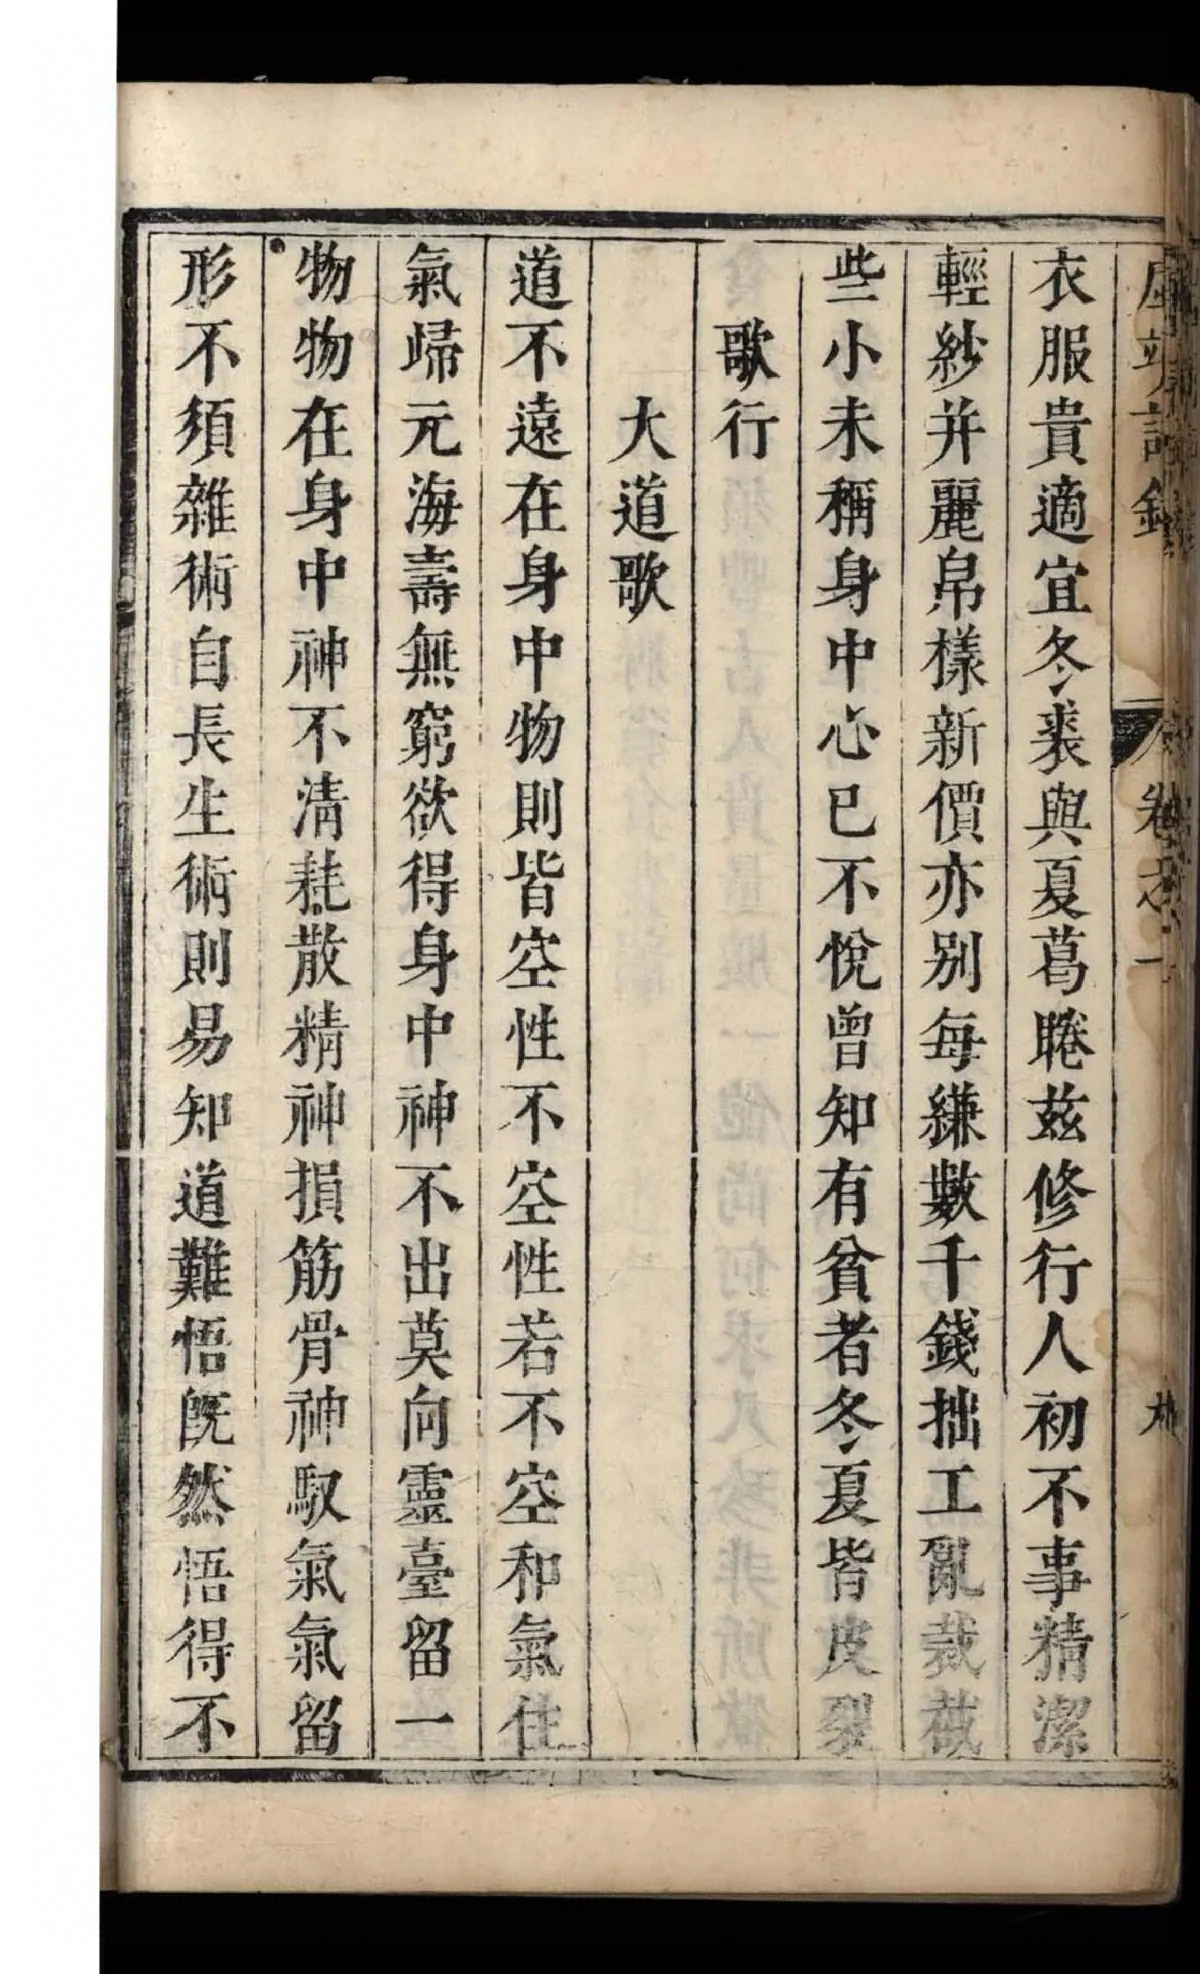 衣服貴適宜冬裘與夏葛睠茲修行人初不事精潔
輕紗并麗帛樣新價亦别每縑數千錢拙工亂裁截
些小未稱身中心已不悅曾知有貧者冬夏皆皮裂
歌行
大道歌
道不遠在身中物則皆空性不空性若不空和氣住
氣歸元海壽無窮欲得身中神不出莫向靈臺留一
物物在身中神不清耗散精神損筋骨神馭氣氣留
形不須雜術自長生術則易知道難悟既然悟得不